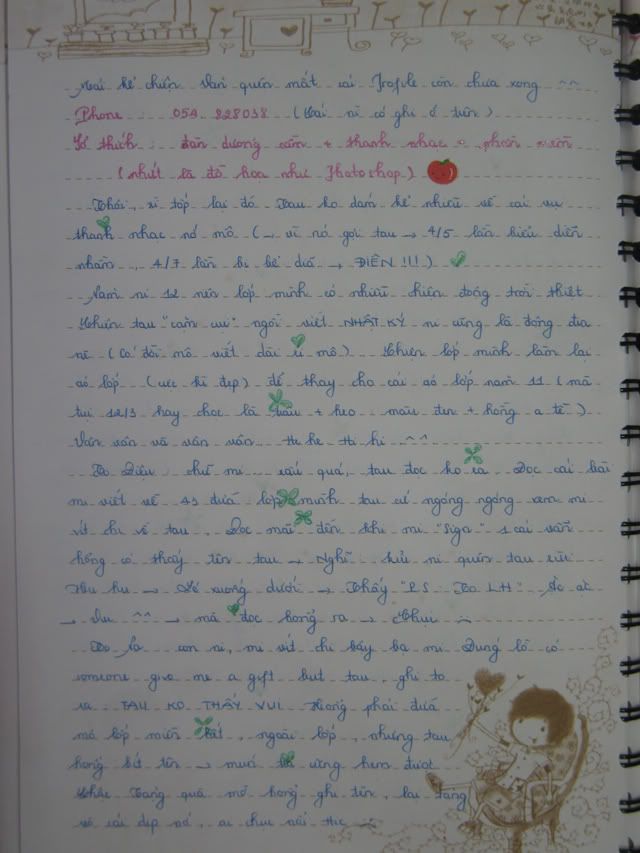 Mãi kể chiện làm quên mất cái Profile còn chưa xong ^^
Phone : 054 828038 (Hai ni có ghi ở trên)
Sở thích : đàn dương cầm + thanh nhạc o phoán
(nhứt là đồ họa như Photoshop)
Thôi, xì tốp lại đó. Tau ko dám kể nhiều về cái vụ
thanh nhạc nớ mô (→ vì nó gợi tau → 4/5 lần biểu diễn
nhầm, 4/7 lần bị bể dưá → ĐIÊN !!!)
Năm ni 12 nên lớp mình có nhiều chiện động trời thiệt
Khiến tau "cặm cụi" ngồi viết NHẬT KÝ ni cũng là động địa
nè (Có đời mô viết dài ri mô) Chiện lớp mình làm lại
aó lớp (cực kì đẹp) để thay cho cái aó lớp năm 11 (mà
tụi 12/3 hay chọc là trâu + heo màu đen + hồng a tề)
Vân vân và vân vân He he Hi hi ^^
Bo Diệu : chữ mi xấu quá, tau đọc ko ra. Đọc cái bài
mi viết về 43 đứa lớp mình tau cứ ngóng ngóng xem mi
vít chi về tau, Đọc mãi đến khi mi "Siga" 1 cái vẫn
hổng có thấy tên tau → Nghĩ hủi ni quên tau rùi
Hu hu → Ngó xuống dưới → Thấy "P.S Bo LH"
→ Vui ^^ → mà đọc hong ra → Chụi
con ni, mi vít chi bậy ba mi. Đùng lô có
someone give me a gift but tau, ghi to
ra TAU KO THẤY VUI Hong phải đưá
mô lớp mình hết, ngoài lớp, nhưng tau
hong bít tên → mưń trả cũng hem được
Khắc Trang quá mớ hong ghi tên, lại tặng
cái đẹp nớ, ai chịu nổi